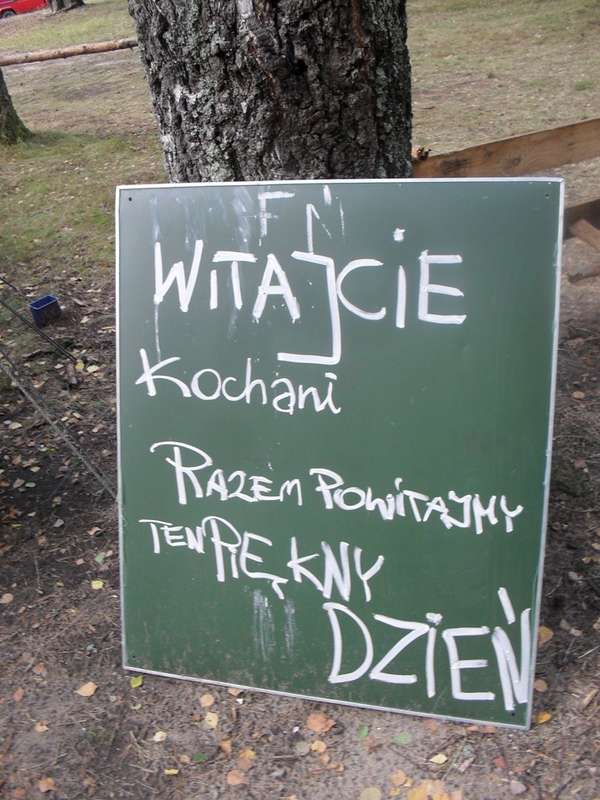 FN
WITAJCIE
Kochani
RAZEM POWITAJMY
TEN PIĘKNY
DZIEŃ